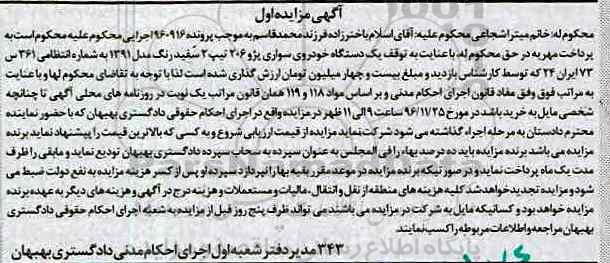 آگهی مزایده اول
محکوم له: خانم میترا شجاعی محکوم علیه: آقای اسلام باختر زاده فرزند محمدقاسم به موجب پرونده ۹۶۰۹۱۶ اجرایی محکوم علیه محکوم است به
پرداخت مهریه در حق محکوم له. با عنایت به توقف یک دستگاه خودروی سواری پژو ۲۰۶ تیپ ۲ سفید رنگ مدل ۱۳۹۱ به شماره انتظامی ۳۶۱ س
۷۳ ایران ۲۴ که توسط کارشناس بازدید و مبلغ بیست و چهار میلیون تومان ارزش گذاری شده است لذا با توجه به تقاضای محکوم لها و با عنایت
به مراتب فوق وفق مفاد قانون اجرای احکام مدنی و بر اساس مواد ۱۱۸ و ۱۱۹ همان قانون مراتب یک نوبت در روزنامه های محلی آگهی تا چنانچه
شخصی مایل به خرید باشد در مورخ ۹۶/۱۱/۲۵ ساعت ۹ الی ۱۱ ظهر در مزایده واقع در اجرای احکام حقوقی دادگستری بهبهان که با حضور نماینده
محترم دادستان به مرحله اجراء گذاشته می شود شرکت نماید مزایده از قیمت ارزیابی شروع و به کسی که بالاترین قیمت را پیشنهاد نماید برنده
مزایده می باشد برنده مزایده باید ده درصد بهاء را فی المجلس به عنوان سپرده به حساب سپرده دادگستری بهبهان تودیع نماید و مابقی را ظرف
مدت یک ماه پرداخت نماید و در صورتیکه برنده مزایده در موعد مقرر بقیه بها را نپردازد سپرده او پس از کسر هزینه مزایده به نفع دولت ضبط می
شود و مزایده تجدید خواهد شد کلیه هزینه های منطقه از نقل و انتقال، مالیات و مستعملات و هزینه درج در آگهی و هزینه های دیگر به عهده برنده
مزایده خواهد بود و کسانیکه مایل به شرکت در مزایده می باشند می تواند ظرف پنج روز قبل از مزایده به شعبه اجرای احکام حقوقی دادگستری
بهبهان مراجعه و اطلاعات مربوطه را کسب نمایند.
۳۴۳ مدیر دفتر شعبه اول اجرای احکام مدنی دادگستری بهبهان